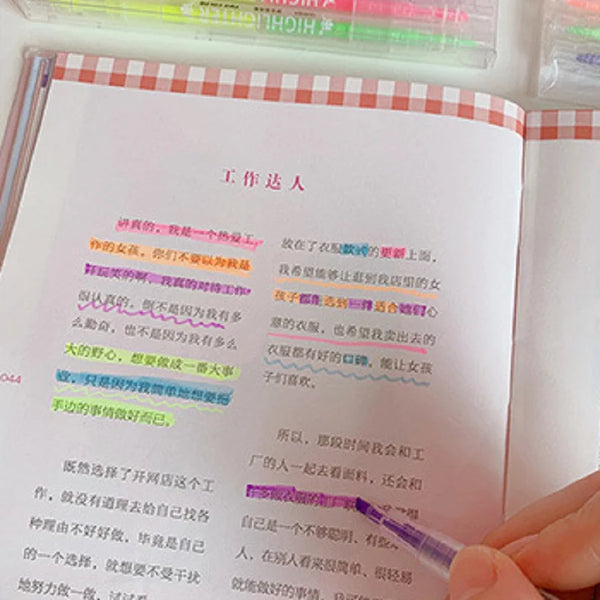 HIGHLIGHTER
HIGHLIGHTER
工作达人
讲真的，我是一个热爱工
作的女孩，你们不要以为我是
好玩笑的啊，我真的对待工作
很认真的，倒不是因为我有多
么勤奋，也不是因为我有多么
大的野心，想要做成一番大事
业，只是因为我简单地想要把
手边的事情做好而已。
既然选择了开网店这个工
作，就没有道理去给自己找各
种理由不好好做，毕竟是自己
的一个选择，就想要不受干扰
地努力做一做，试试看
放在了衣服款式的更新上面，
我希望能够让逛到我店里的女
孩子都能选到一件适合她们心
意的衣服，也希望我卖出去的
衣服都有好的口碑，能让女孩
子们喜欢。
所以，那段时间我会和工
厂的人一起去看面料，还会和
自己是一个不够聪明、有些
人，在别人看来很简单、很轻易
就能做好的事情，我可能
044